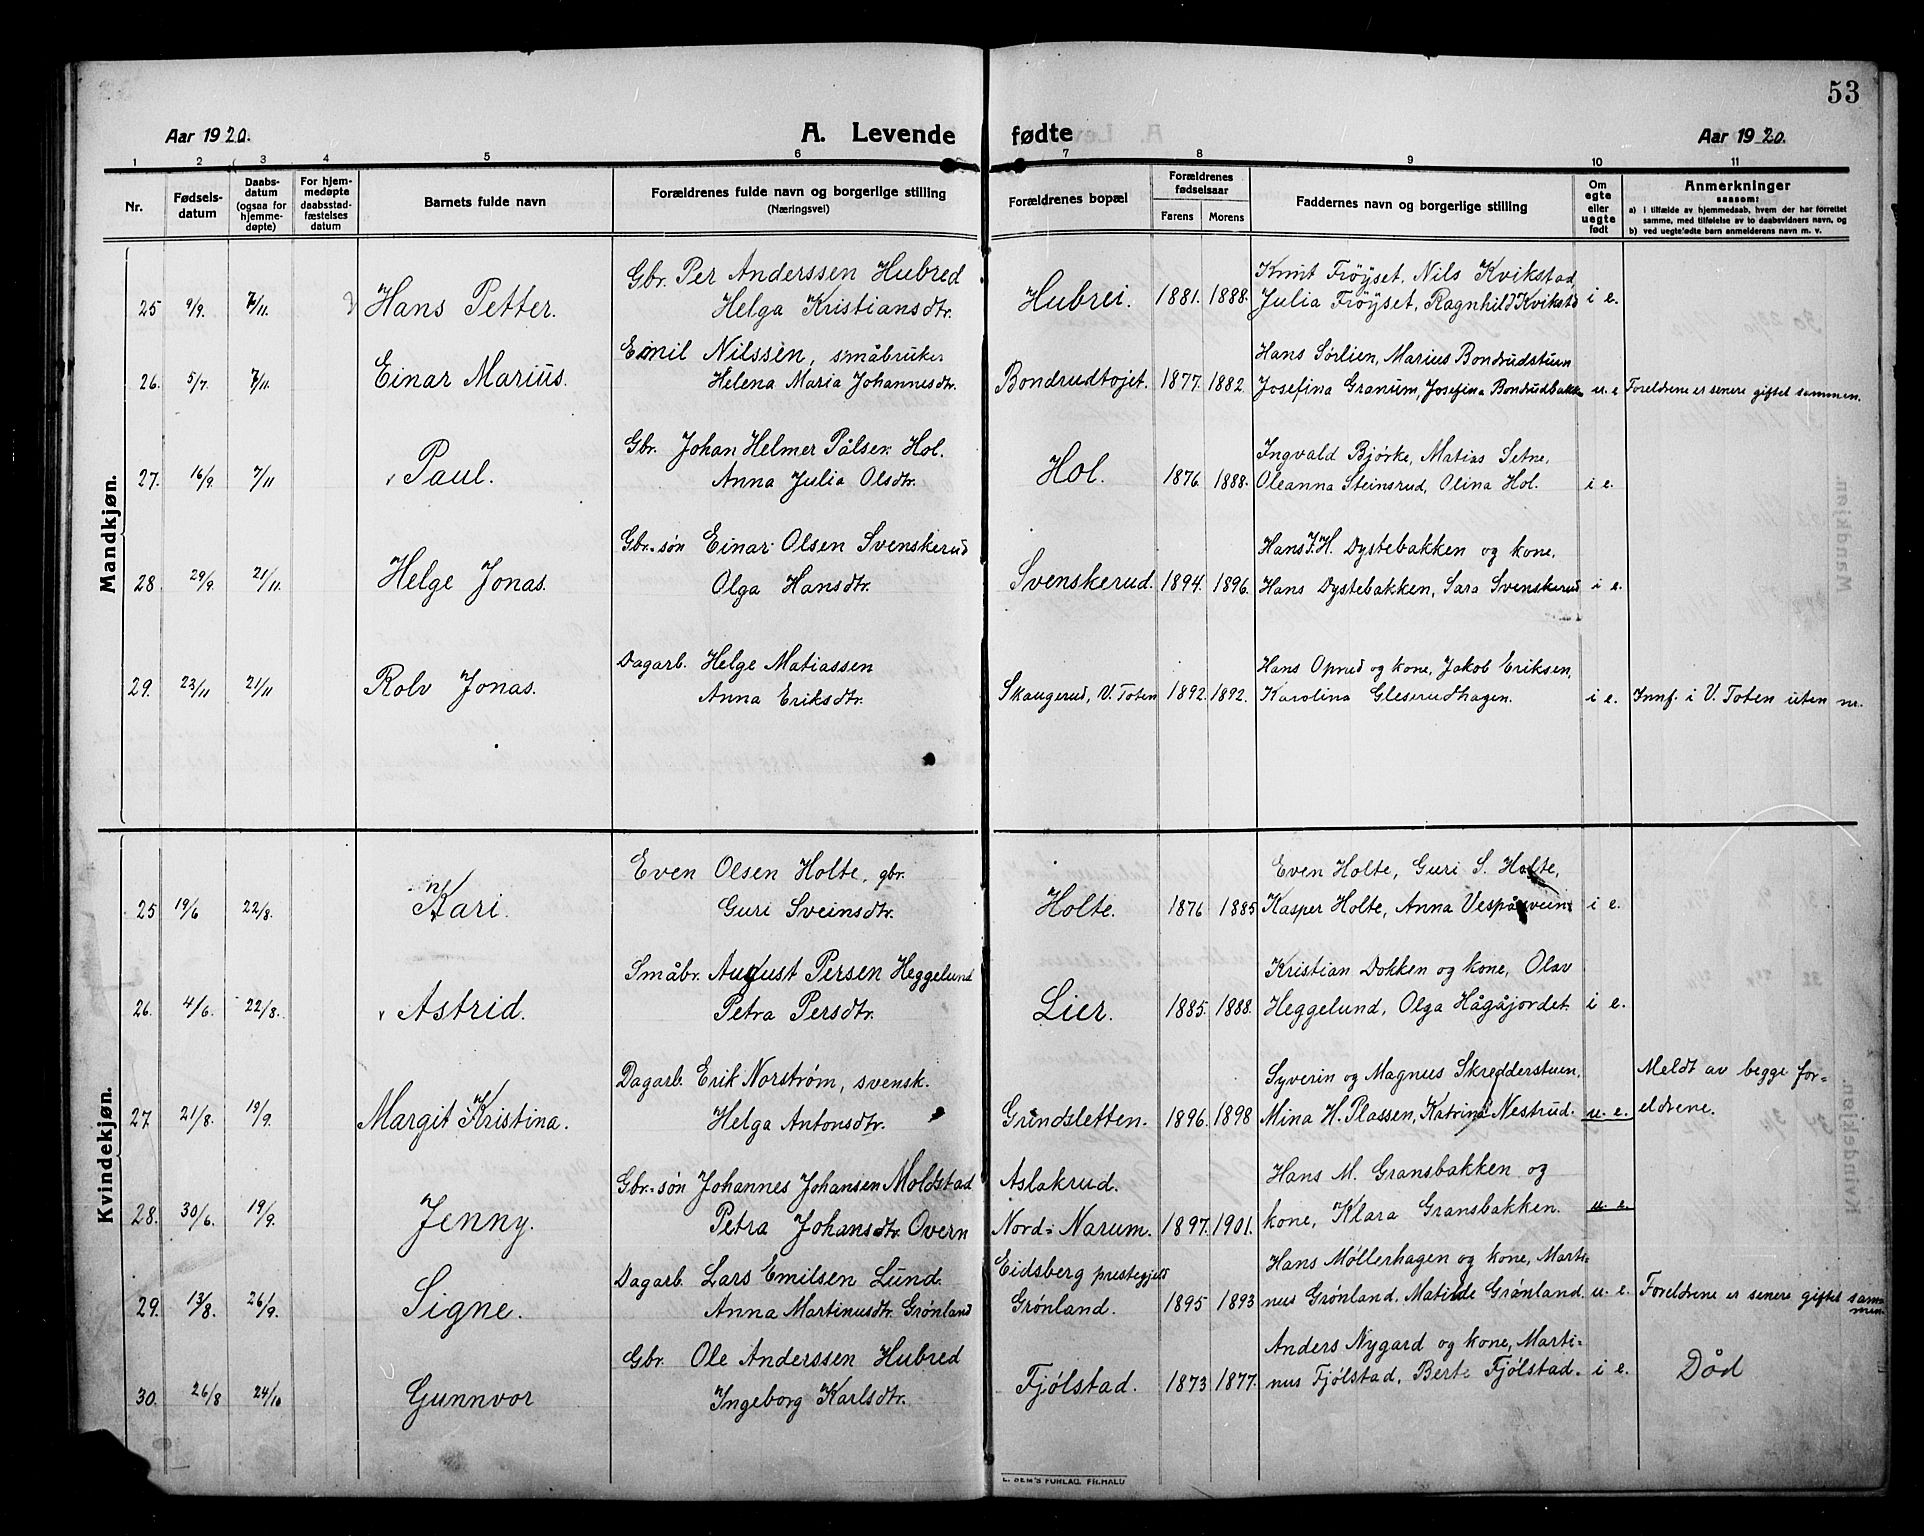 53
Aar 1920.
A. Levende fødte
Aar 1920.
1 2 3 4 5 6 7 8 9 10 11
Nr.
Fødselsdatum
Daabsdatum (ogsaa for hjemmedøpte)
For hjemmedøpte daabsstadfæstelses datum
Barnets fulde navn
Forældrenes fulde navn og borgerlige stilling
(Næringsvei)
Forældrenes bopæl
Forældrenes fødselsaar
Farens Morens
Faddernes navn og borgerlige stilling
Om egte eller uegte født
Anmerkninger
saasom:
a) i tilfælde av hjemmedaab, hvem der har forrettet
samme, med tilføielse av to daabsvidners navn, og
b) ved uegtefødte barn anmelderens navn m. v.
Mandkjøn.
Gbr. Per Anderssen Hubred Knut Frøyset, Nils Kvikstad,
25 9/9. 7/11. Hans Petter. Helga Kristiansdtr. Hubrei. 1881. 1888. Julia Frøyset, Ragnhild Kvikstd i e.
Emil Nilssen, småbruker Hans Sørlien, Marius Bondrudstuen
26. 5/7. 7/11. Einar Marius. Helena Maria Johannesdtr. Bondrudtojet. 1877. 1882. Josefina Granum, Josefina Bondrudbakk u. e Foreldrene er senere giftet sammen.
Gbr. Johan Helmer Pålsen Hol. Ingvald Bjørke, Matias Setne,
27. 16/9. 7/11 Paul. Anna Julia Olsdtr. Hol. 1876. 1888. Oleanna Steinsrud, Olina Hol. i e.
Gbr.-søn Einar Olsen Svenskerud Hans J. H. Dystebakken og kone,
28. 29/9. 21/11. Helge Jonas. Olga Hansdtr. Svenskerud. 1894. 1896. Hans Dystebakken, Sara Svenskerud i e.
Dagarb. Helge Matiassen Hans Oprud og kone, Jakob Eriksen,
29. 23/11 21/11 Rolv Jonas. Anna Eriksdtr. Skaugerud, V. Toten 1892. 1892. Karolina Gleserudhagen. i e. Innf. i V. Toten uten nr.
Kvindekjøn.
Even Olsen Holte, gbr. Even Holte, Guri S. Holte,
25 19/6 22/8. Kari. Guri Sveinsdtr. Holte. 1876 1885 Kasper Holte, Anna i e.
Småbr. August Persen Heggelund Kristian Dokken og kone, Olav
26. 4/6. 22/8. Astrid. Petra Persdtr. Lier. 1885. 1888. Heggelund, Olga Hågåjordet. i e.
Dagarb. Erik Norstrøm, svensk. Syverin og Magnus Skredderstuen, Meldt av begge for-
27. 21/8. 19/9. Margit Kristina. Helga Antonsdtr. Grindsletten. 1896. 1898 Mina H. Plassen, Katrina Nestrud. u. e. eldrene.
Gbr.-søn Johannes Johansen Moldstad Aslakrud. Hans M. Gransbakken og
28. 30/6. 19/9. Jenny. Petra Johansdtr. Overn Nord-Narum. 1897. 1901. kone, Klara Gransbakken. u. e.
Dagarb. Lars Emilsen Lund. Eidsberg prestegjeld Hans Møllerhagen og kone, Marti-
29. 13/8. 26/9. Signe. Anna Martinusdtr. Grønland Grønland. 1895 1893 nus Grønland, Matilde Grønland. u. e. Foreldrene er senere giftet sammen.
Gbr. Ole Anderssen Hubred Anders Nygard og kone, Marti-
30. 26/8 24/10 Gunnvor Ingeborg Karlsdtr. Fjølstad. 1873 1877. nus Fjølstad, Berte Fjølstad. i e. Død
FORLAG. FR.HALD